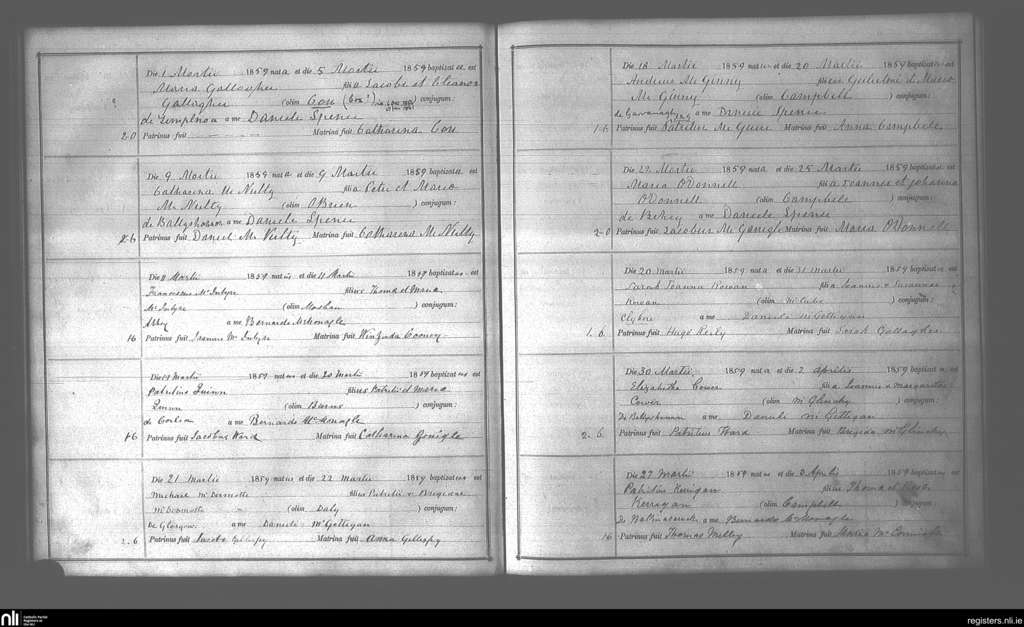 Die 1 Martii 1859 nat a et die 5 Martii 1859 baptizat a est
Maria Gallagher filia Jacobi et Eleanor
Gallagher (olim Coxe (Cox?) conjugum:
de a me Daniele Spence
2.0 Patrinus fuit Matrina fuit Catharina Coxe
Die 9 Martii 1859 nat a et die 9 Martii 1859 baptizat a est
Catharina Mc Nulty filia Petri et Maria
Mc Nulty (olim O'Brien ) conjugum:
de a me Daniele Spence
2.6 Patrinus fuit Daniel Mc Nulty Matrina fuit Catharina Mc Nulty
Die 11 Martii 1859 nat us et die 11 Martii 1859 baptizat us est
Franciscus McIntyre filius Thoma et Maria
McIntyre (olim Meehan ) conjugum:
Abbey a me Bernardo McMonagle
16 Patrinus fuit McIntyre Matrina fuit Winifrida Cooney
Die Martii 1859 nat us et die 20 Martii 1859 baptizat us est
Patritius Quinn filius Patritii et Maria
Quinn (olim Burns ) conjugum:
de Corlea a me Bernardo McMonagle
16 Patrinus fuit Jacobus Ward Matrina fuit Catharina Gonigle
Die 21 Martii 1859 nat us et die 22 Martii 1859 baptizat us est
Michael McDermotte filius Patritii et Brigidae
McDermotte (olim Daly ) conjugum:
de Glasgow a me Daniele McGettigan
2.6 Patrinus fuit Jacobo Gillespy Matrina fuit Anna Gillespy
Die 18 Martii 1859 nat us et die 20 Martii 1859 baptizat us est
Andreas McGinny filius Gulielmi et Maria
McGinny (olim Campbell ) conjugum:
de a me Daniele Spence
16 Patrinus fuit Patritius McGuire Matrina fuit Anna Campbell
Die 22 Martii 1859 nat a et die 25 Martii 1859 baptizat a est
Maria O'Donnell filia Joannis et Johanna
O'Donnell (olim Campbell ) conjugum:
de a me Daniele Spence
2-0 Patrinus fuit Jacobus McGonigle Matrina fuit Maria O'Donnell
Die 20 Martii 1859 nat a et die 31 Martii 1859 baptizat a est
Sarah Joanna Rowan filia Joannis et Susannae
Rowan (olim McCabe ) conjugum:
Clyhore a me Daniele McGettigan
1.6. Patrinus fuit Hugo Keely Matrina fuit Sarah Gallagher
Die 30 Martii 1859 nat a et die 2 Aprilis 1859 baptizat a est
Elizabetha Cower filia Joannis et Margaritae
Cower (olim McGlinchy ) conjugum:
de Ballyshannon a me Daniele McGettigan
2.6. Patrinus fuit Patritius Ward Matrina fuit Brigida McGlinchy
Die 27 Martii 1859 nat us et die 3 Aprilis 1859 baptizat us est
Patritius Kerrigan filius Thoma et
Kerrigan (olim Campbell ) conjugum:
de a me Bernardo McMonagle
16 Patrinus fuit Thomas Melly Matrina fuit Maria
nli
Catholic Parish
Registers at
the NLI
registers.nli.ie